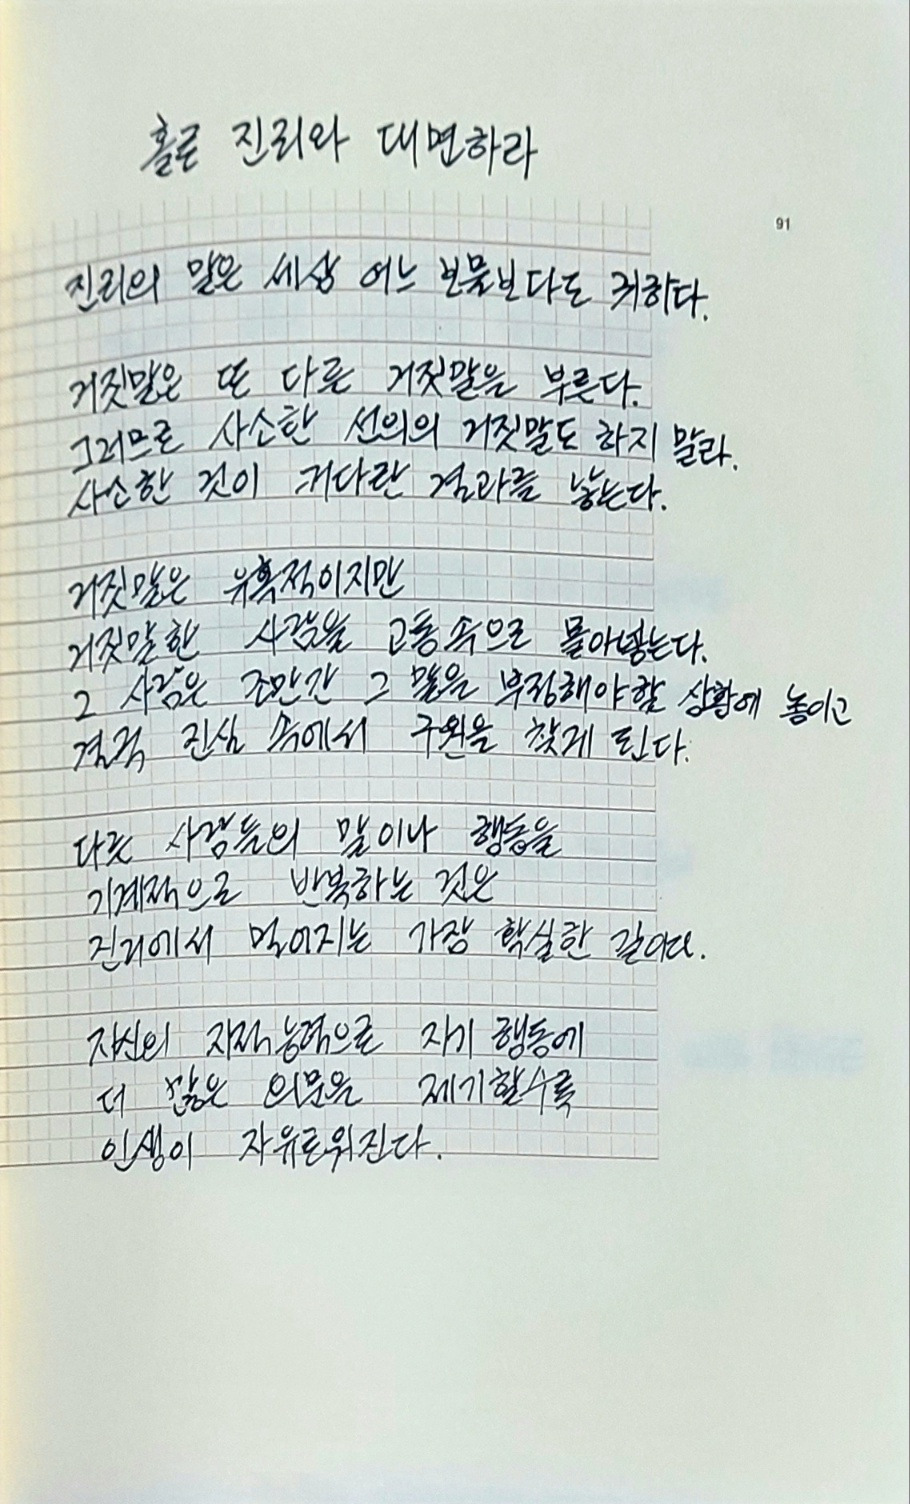 홀로 진리와 대면하라
91
진리의 말은 세상 어느 보물보다도 귀하다.
거짓말은 또 다른 거짓말을 부른다.
그러므로 사소한 선의의 거짓말도 하지 말라.
사소한 것이 커다란 결과를 낳는다.
거짓말은 유혹적이지만
거짓말한 사람을 고통 속으로 몰아넣는다.
그 사람은 조만간 그 말을 부정해야 할 상황에 놓이고
결국 진심 속에서 구원을 찾게 된다.
다른 사람들의 말이나 행동을
기계적으로 반복하는 것은
진리에서 멀어지는 가장 확실한 길이다.
자신의 지적능력으로 자기 행동에
더 많은 의문을 제기할수록
인생이 자유로워진다.